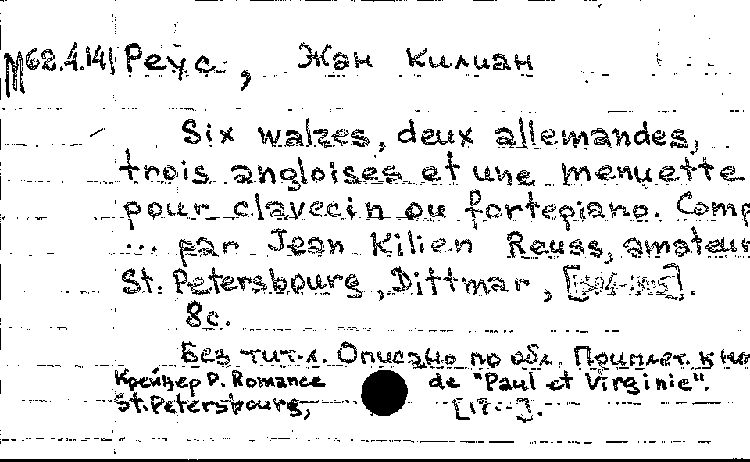 М62.4.141 Реус, Жан Килиан
Six walzes, deux allemandes,
trois angloises et une menuette
pour clavecin ou fortepiano. Comp
... par Jean Kilien Reuss, amateur
St. Petersbourg, Dittmar,
8с.
Без тит.л. Описано по обл. Приплет. к но
Крейцер Р. Romance de "Paul et Virginie".
St. Petersbourg, [17--].